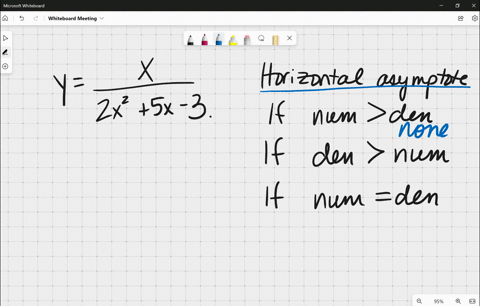 Microsoft Whiteboard
Whiteboard Meeting
y = x / 2x² + 5x - 3.
Horizontal asymptote
If num > den
none
If den > num
If num = den
95%